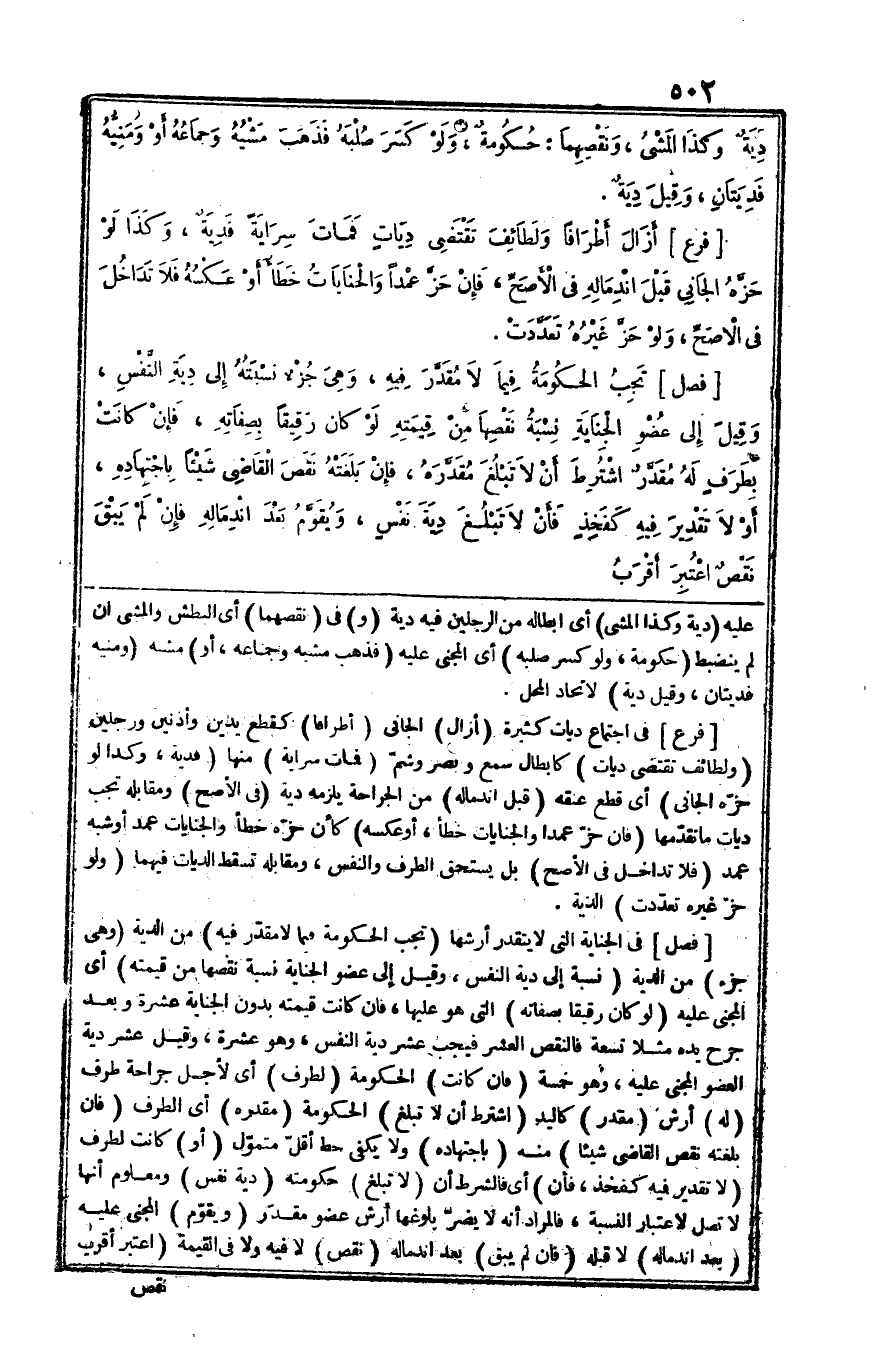 ٥٠٢
دِيَةٌ وكَذَا المَشْىُ ، وَنَقْصِهِمَا : حُكُومَةٌ ، وَلَوْ كَسَرَ صُلْبَهُ فَذَهَبَ مَشْيُهُ وَجِمَاعُهُ أَوْ وَمَنِيُّهُ
فَدِيَتَانِ ، وَقِيلَ دِيَةٌ .
[ فرع ] أَزَالَ أَطْرَافًا وَلَطَائِفَ تَقْتَضِى دِيَاتٍ فَمَاتَ سِرَايَةً فَدِيَةٌ ، وَكَذَا لَوْ
حَزَّهُ الجَانِي قَبْلَ انْدِمَالِهِ فى الْأَصَحِّ ، فَإِنْ حَزَّ عَمْداً وَالْجِنَايَاتُ خَطَأً أَوْ عَكْسُهُ فَلَا تَدَاخُلَ
فى الْاصَحِّ ، وَلَوْ حَزَّ غَيْرُهُ تَعَدَّدَتْ .
[ فصل ] تَجِبُ الحُكُومَةُ فِيمَا لَا مُقَدَّرَ فِيهِ ، وَهِىَ جُزْء نِسْبَتُهُ إِلى دِيَةِ النَّفْسِ ،
وَقِيلَ إِلى عُضْوِ الْجِنَايَةِ نِسْبَةُ نَقْصِهَا مِنْ قِيمَتِهِ لَوْ كَان رَقِيقًا بِصِفَاتِهِ ، فَإِنْ كَانَتْ
بِطَرَفٍ لَهُ مُقَدَّرٌ اشْتُرِطَ أَنْ لَا تَبْلُغَ مُقَدَّرَهُ ، فَإِنْ بَلَغَتْهُ نَقَصَ الْقَاضِى شَيْئًا بِاجْتِهَادِهِ ،
أَوْ لَا تَقْدِيرَ فِيهِ كَفَخِذٍ فَأَنْ لَا تَبْلُغَ دِيَةَ نَفْسٍ ، وَيُقَوَّمُ بَعْدَ انْدِمَالِهِ فَإِنْ لَمْ يَبْقَ
نَقْصٌ اعْتُبِرَ أَقْرَبُ
عليه (دية وكذا المشى) أى ابطاله من الرجلين فيه دية (و) فى ( نقصهما ) أى البطش والمشى ان
لم ينضبط (حكومة ، ولو كسر صلبه ) أى المجنى عليه ( فذهب مشيه وجماعه ، أو ) مشيه (ومنيه
فديتان ، وقيل دية ) لاتحاد المحل .
[ فرع ] فى اجتماع ديات كثيرة (أزال) الجانى ( أطرافا ) كقطع يدين وأذنين ورجلين
( ولطائف تقتضى ديات ) كابطال سمع و بصر وشمّ ( فمات سراية ) منها ( فدية ، وكذا لو
حزّه الجانى ) أى قطع عنقه ( قبل اندماله ) من الجراحة يلزمه دية (فى الأصح ) ومقابله تجب
ديات ماتقدّمها ( فان حزّ عمدا والجنايات خطأ ، أوعكسه) كأن حزّه خطأ والجنايات عمد أوشبه
عمد ( فلا تداخل فى الأصح ) بل يستحق الطرف والنفس ، ومقابله تسقط الديات فيهما ( ولو
حزّ غيره تعدّدت ) الدية .
[ فصل ] فى الجناية التى لايتقدر أرشها (تجب الحكومة فيما لامقدّر فيه ) من الدية (وهى
جزء ) من الدية ( نسبة إلى دية النفس ، وقيل إلى عضو الجناية نسبة نقصها من قيمته ) أى
المجنى عليه ( لو كان رقيقا بصفاته ) التى هو عليها ، فان كانت قيمته بدون الجناية عشرة و بعد
جرح يده مثلا تسعة فالنقص العشر فيجب عشر دية النفس ، وهو عشرة ، وقيل عشر دية
العضو المجنى عليه ، وهو خمسة ( فان كانت ) الحكومة ( لطرف ) أى لأجل جراحة طرف
( له ) أرش ( مقدر ) كاليد ( اشترط أن لا تبلغ ) الحكومة ( مقدره ) أى الطرف ( فان
بلغته نقص القاضى شيئا ) منه ( باجتهاده ) ولا يكفى حط أقلّ متموّل ( أو ) كانت لطرف
( لا تقدير فيه كفخذ ، فأن ) أى فالشرط أن ( لا تبلغ ) حكومته ( دية نفس ) ومعلوم أنها
لا تصل لاعتبار النسبة ، فالمراد أنه لا يضرّ بلوغها أرش عضو مقدّر ( ويقوّم ) المجنى عليه
( بعد اندماله ) لا قبله ( فان لم يبق ) بعد اندماله ( نقص ) لا فيه ولا فى القيمة ( اعتبر أقرب
نقص